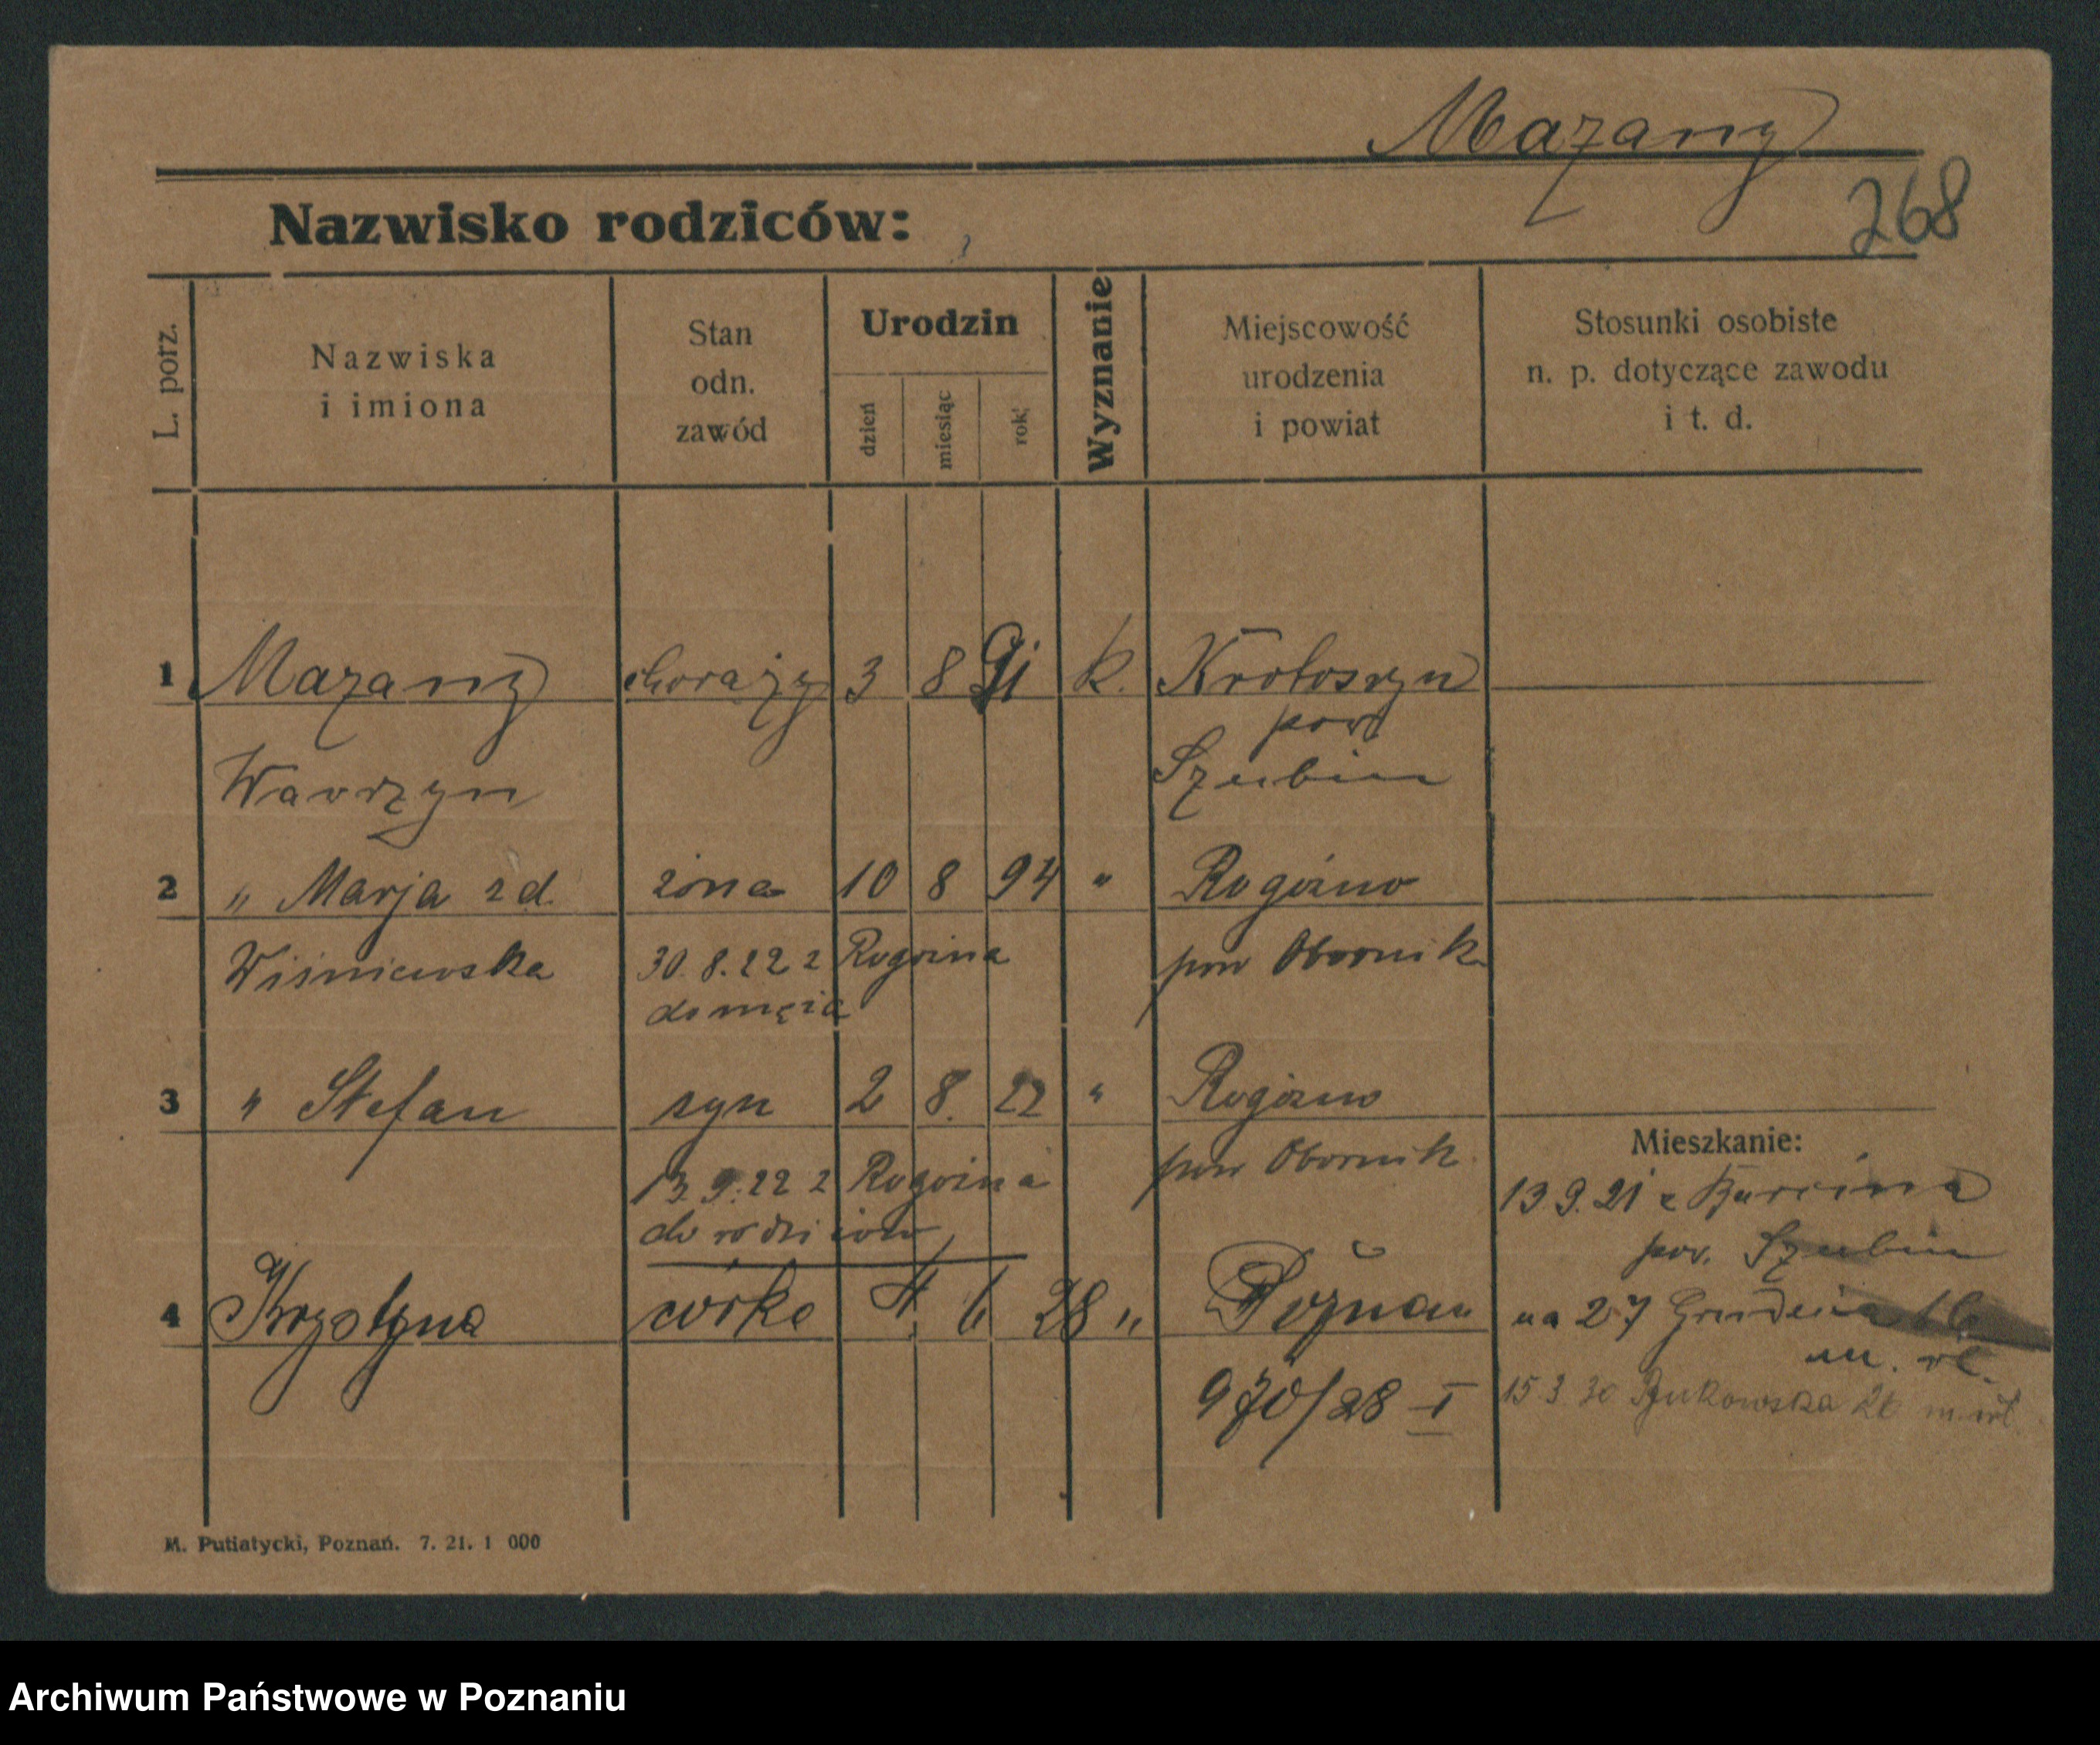 Mazany
268
Nazwisko rodziców:
L. porz.
Nazwiska
i imiona
Stan
odn.
zawód
Urodzin
dzień
miesiąc
rok
Wyznanie
Miejscowość
urodzenia
i powiat
Stosunki osobiste
n. p. dotyczące zawodu
i t. d.
1 Mazany chorąży 3 8 91 k. Krotoszyn
pow
Wawrzyn Szubin
2 " Marja z d. żona 10 8 94 " Rogoźno
Wiśniewska 30.8.22 z Rogoźna pow Obornik
do męża
3 " Stefan syn 2 8. 22 " Rogoźno
Mieszkanie:
13.9.22 z Rogoźna pow Obornik
do rodziców
13.9.21 z Barcina
pow. Szubin
4 Krystyna córka 4. 6 28 " Poznań
na 27 Grudnia 16
m. wł.
970/28 I
15 3 30 Bukowska 26 m. wł.
M. Putiatycki, Poznań. 7. 21. 1 000
Archiwum Państwowe w Poznaniu